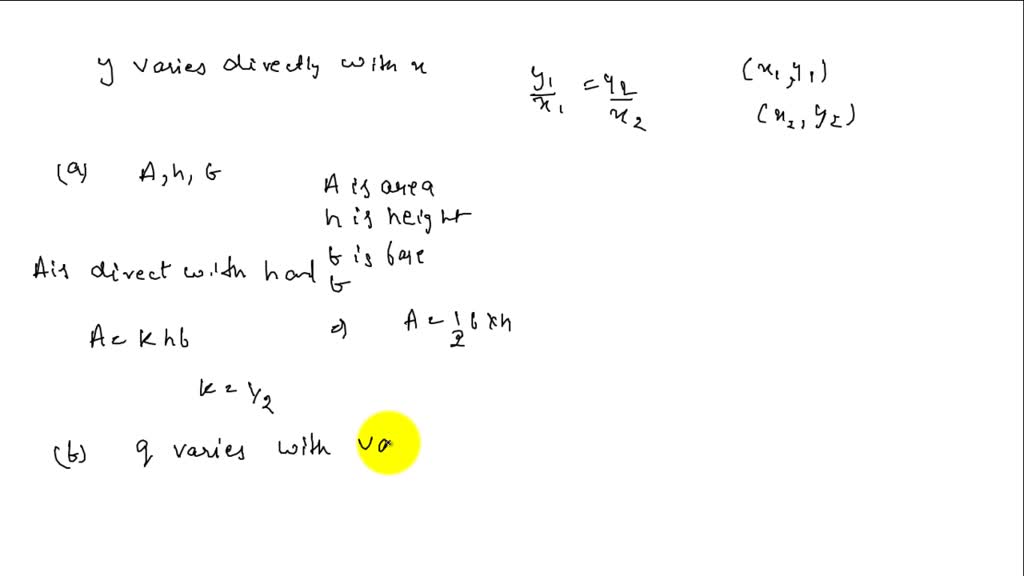 y varies directly with x
y₁/x₁ = y₂/x₂
(x₁, y₁)
(x₂, y₂)
(a) A, h, b
A is area
h is height
b is base
A is direct with h and b
A = k h b
A = 1/2 b x h
k = 1/2
(b) q varies with va